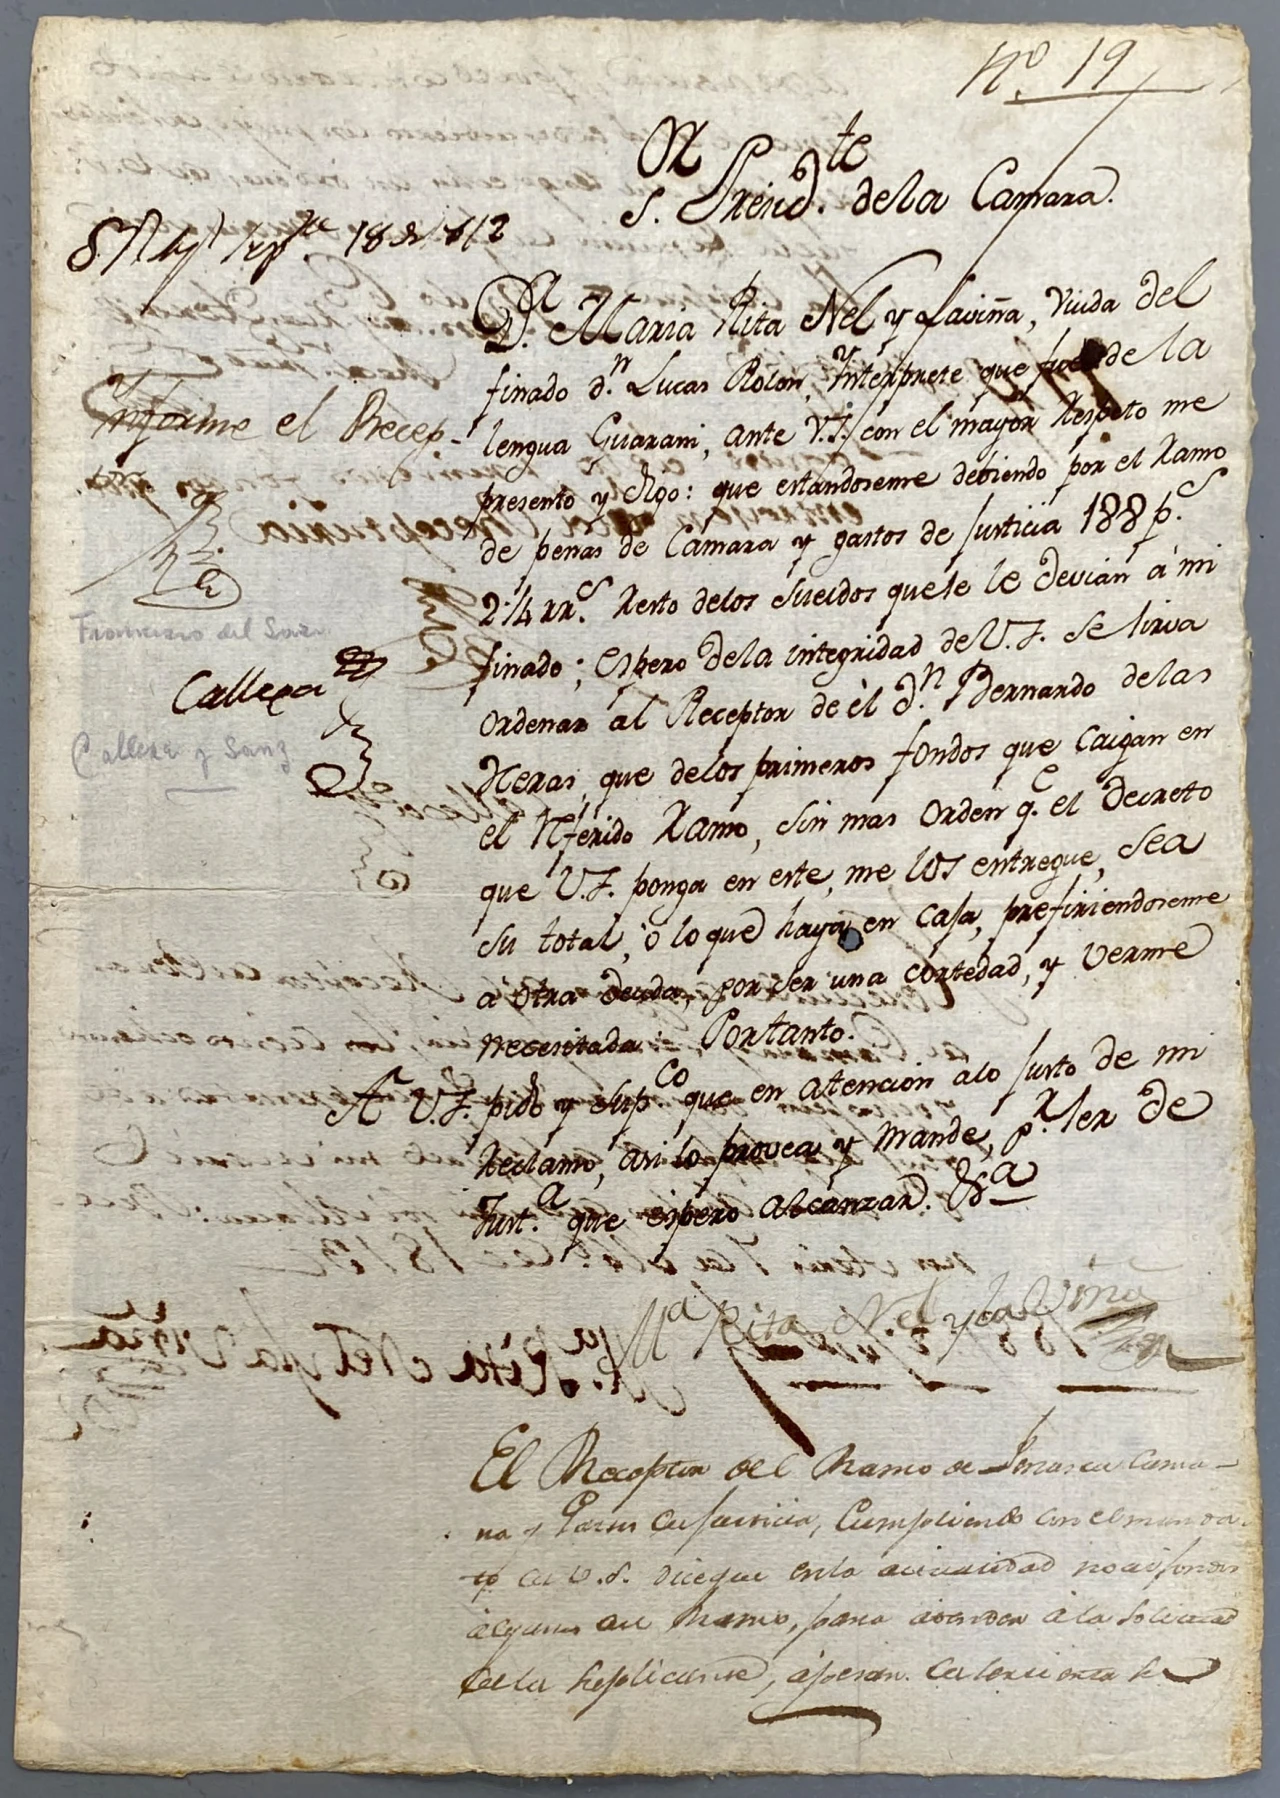 N.º 19
Sr. Presid.te de la Camara.
D.a Maria Rita Nel y Laviña, Viuda del
finado d.n Lucas Rolon, Ynterprete que fue de la
lengua Guarani, ante V.S. con el mayor Respeto me
presento y digo: que estandoseme debiendo por el Ramo
de penas de Camara y gastos de Justicia 188 p.s
2 1/4 rr.s resto delos sueldos que se le devian á mi
finado; espero dela integridad de V.S. se sirva
ordenar al Receptor de él d.n Bernardo delas
Heras, que delos primeros fondos que caigan en
el referido Ramo, sin mas orden q.e el Decreto
que V.S. ponga en este, me los entregue, sea
su total, ó lo que haya en Caja, prefiriendoseme
a otra deuda, por ser una cortedad, y verme
necesitada: Portanto.
A V.S. pido y sup.co que en atencion alo justo de mi
Reclamo, asi lo provea y mande, p.r ser de
Just.a que espero alcanzar. &a
M.a Rita Nel y la Viña
Informe el Recep-
Francisco del Sar
Callexa
Callexa y Sanz
El Receptor del Ramo de Penas de Cama-
ra y Gastos de Justicia, Cumpliendo con el manda-
to de V.S. dice que en la actualidad no ai fondos
algunos del Ramo, para atender á la solicitud
de la suplicante, apesar